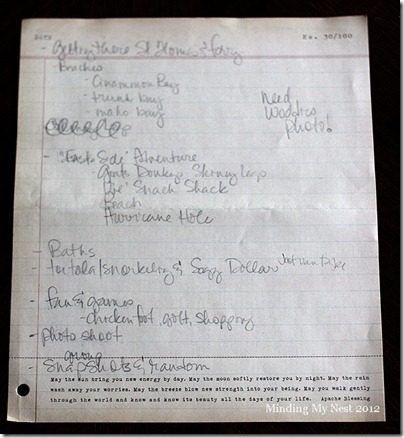 DATE No. 30/100
- Getting there St Thomas & ferry
- Beaches
- Cinammon Bay
- trunk bay
- maho bay
need
photo!
- "East Side" Adventure
Goats Donkeys Skinny Legs
Snack Shack
Beach
Hurricane Hole
- Baths
- tortola/snorkeling & Soggy Dollar Jost Van Dyke
- fun & games
- chicken foot, golf, shopping
- photo shoot
group
- snapshots & random
May the sun bring you new energy by day. May the moon softly restore you by night. May the rain
wash away your worries. May the breeze blow new strength into your being. May you walk gently
through the world and know and know its beauty all the days of your life. Apache Blessing
Minding My Nest 2012